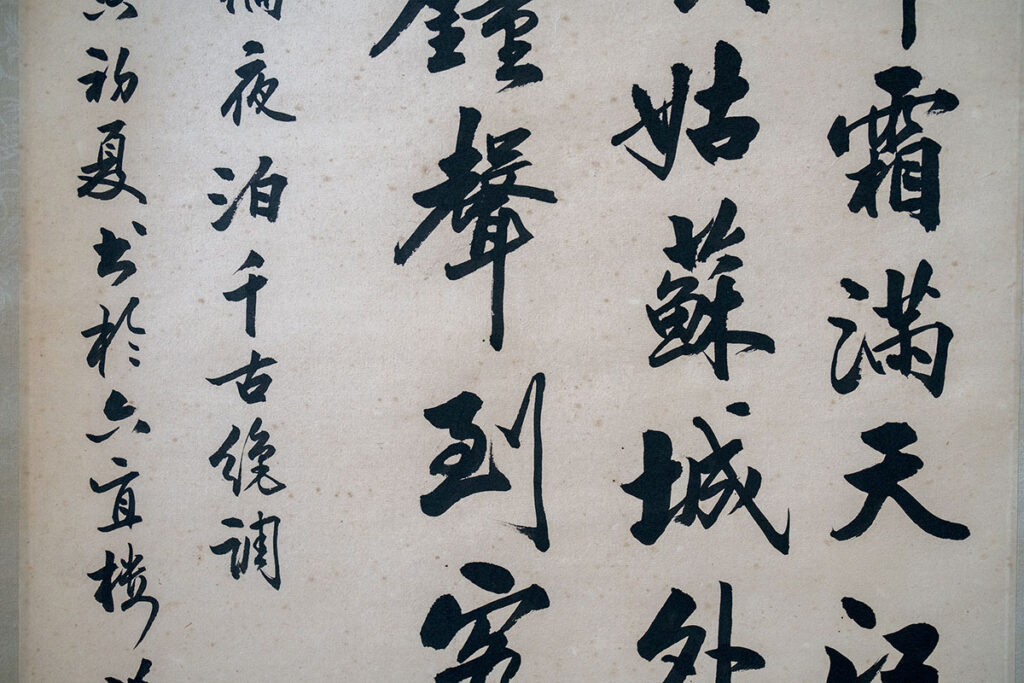 霜滿天江
姑蘇城外
鐘聲到客
夜泊千古絶調
初夏书於六宜楼